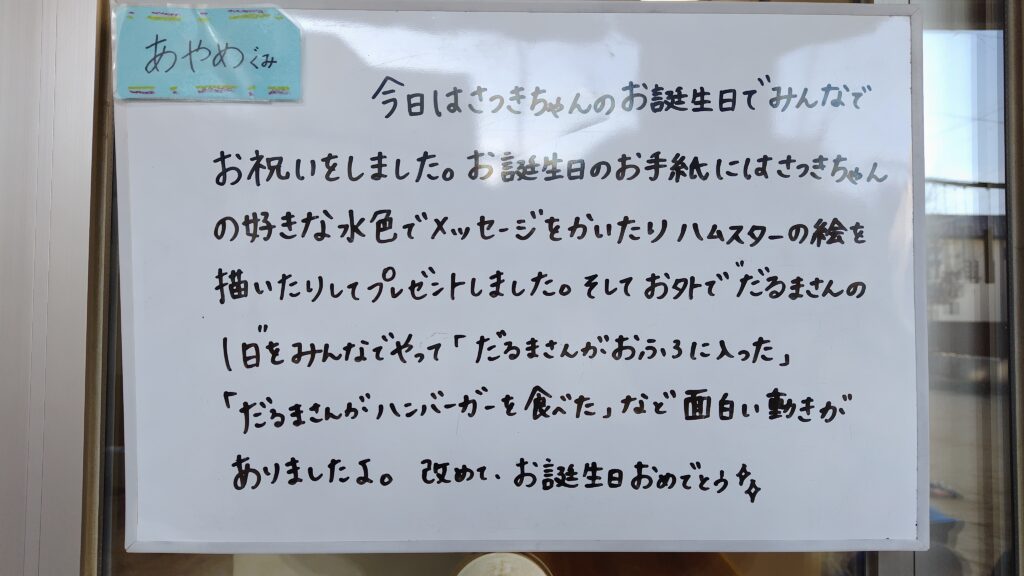 あやめぐみ
今日はさつきちゃんのお誕生日でみんなで
お祝いをしました。お誕生日のお手紙にはさつきちゃん
の好きな水色でメッセージをかいたりハムスターの絵を
描いたりしてプレゼントしました。そしてお外でだるまさんの
1日をみんなでやって「だるまさんがおふろに入った」
「だるまさんがハンバーガーを食べた」など面白い動きが
ありましたよ。改めて、お誕生日おめでとう